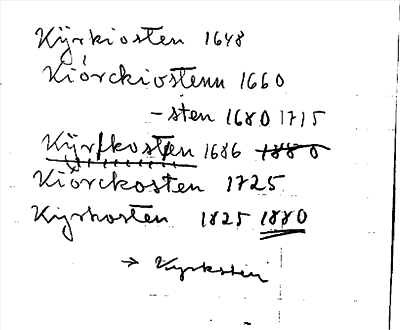 Kÿrkiosten 1648
Kiörckiostenn 1660
-sten 1680 1715
Kÿrkkosten 1686 1880
Kiörckosten 1725
Kyrkosten 1825 1880
→ Kyrksten